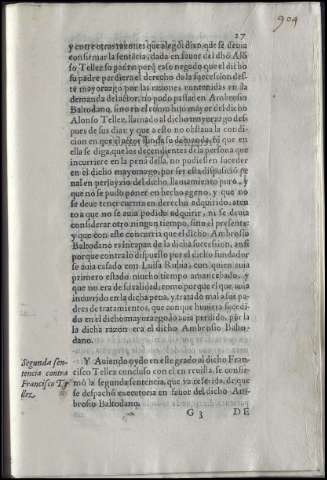 904
27
y entre otras razones que alegò: dixo, que se deuia
confirmar la sentẽcia, dada en fauor del dho Alõ-
so Tellez su padre, porq̃ caso negado que el dicho
su padre perdiera el derecho de la succession des-
te mayorazgo por las razones contenidas en la
demanda del actor, no pudo passar en Ambrosio
Baltodano, sino en el como hijo mayor del dicho
Alonso Tellez, llamado al dicho mayorazgo des-
pues de sus dias: y que a esto no obstaua la condi-
cion en que el actor funda su demanda, en que en
ella se diga, que los decendientes de la persona que
incurriere en la pena della, no pudiessen suceder
en el dicho mayorazgo, por ser esta disposiciõ pe-
nal en perjuyzio del dicho, llamamiento puro, y
que no se pudo poner en hecho ageno, y que no
se deue tener cuenta en derecho adquirido, aten-
to a que no se auia podido adquirir, ni se deuia
considerar otro ningun tiempo, sino el presente:
y que con este concurria que el dicho Ambrosio
Baltodano era incapaz de la dicha succession, ansi
porque contra lo dispuesto por el dicho fundador
se auia casado con Luisa Rubia, con quien auia
primero estado mucho tiempo amancebado, y
que no era de su calidad, como porque el que auia
incurrido en la dicha pena, y tratado mal a sus pa-
dres de tratamientos, que aunque huuiera sucedi-
do en el dicho mayorazgo lo auia perdido, por la
la dicha razon era el dicho Ambrosio Balto-
dano.
Segunda sen-
tencia contra
Francisco Te-
llez.
Y Auiendo oydo en este grado al dicho Fran-
cisco Tellez concluso con el en reuista, se confir-
mò la segunda sentencia, que va referida, de que
se despachò executoria en fauor del dicho Am-
brosio Baltodano.
G 3 DE